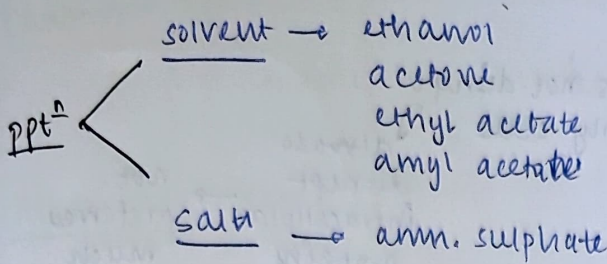 solvent → ethanol
acetone
pptⁿ
ethyl acetate
amyl acetate
salt → amm. sulphate